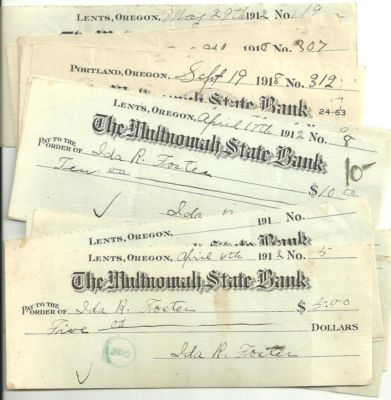 LENTS, OREGON, May 29th 1912 No. 19
The
1918 No. 307
PORTLAND, OREGON, Sept 19 1918 No. 312
State Bank 24-63
LENTS, OREGON, April 17th 1912 No. 8
The Multnomah State Bank
PAY TO THE ORDER OF Ida R. Foster
10-
Ten 00 $10.00
Ida
191 No.
LENTS, OREGON,
LENTS, OREGON, April 6th 1912 No. 5
The Multnomah State Bank
PAY TO THE ORDER OF Ida R. Foster $5.00
Five 00 DOLLARS
Ida R. Foster